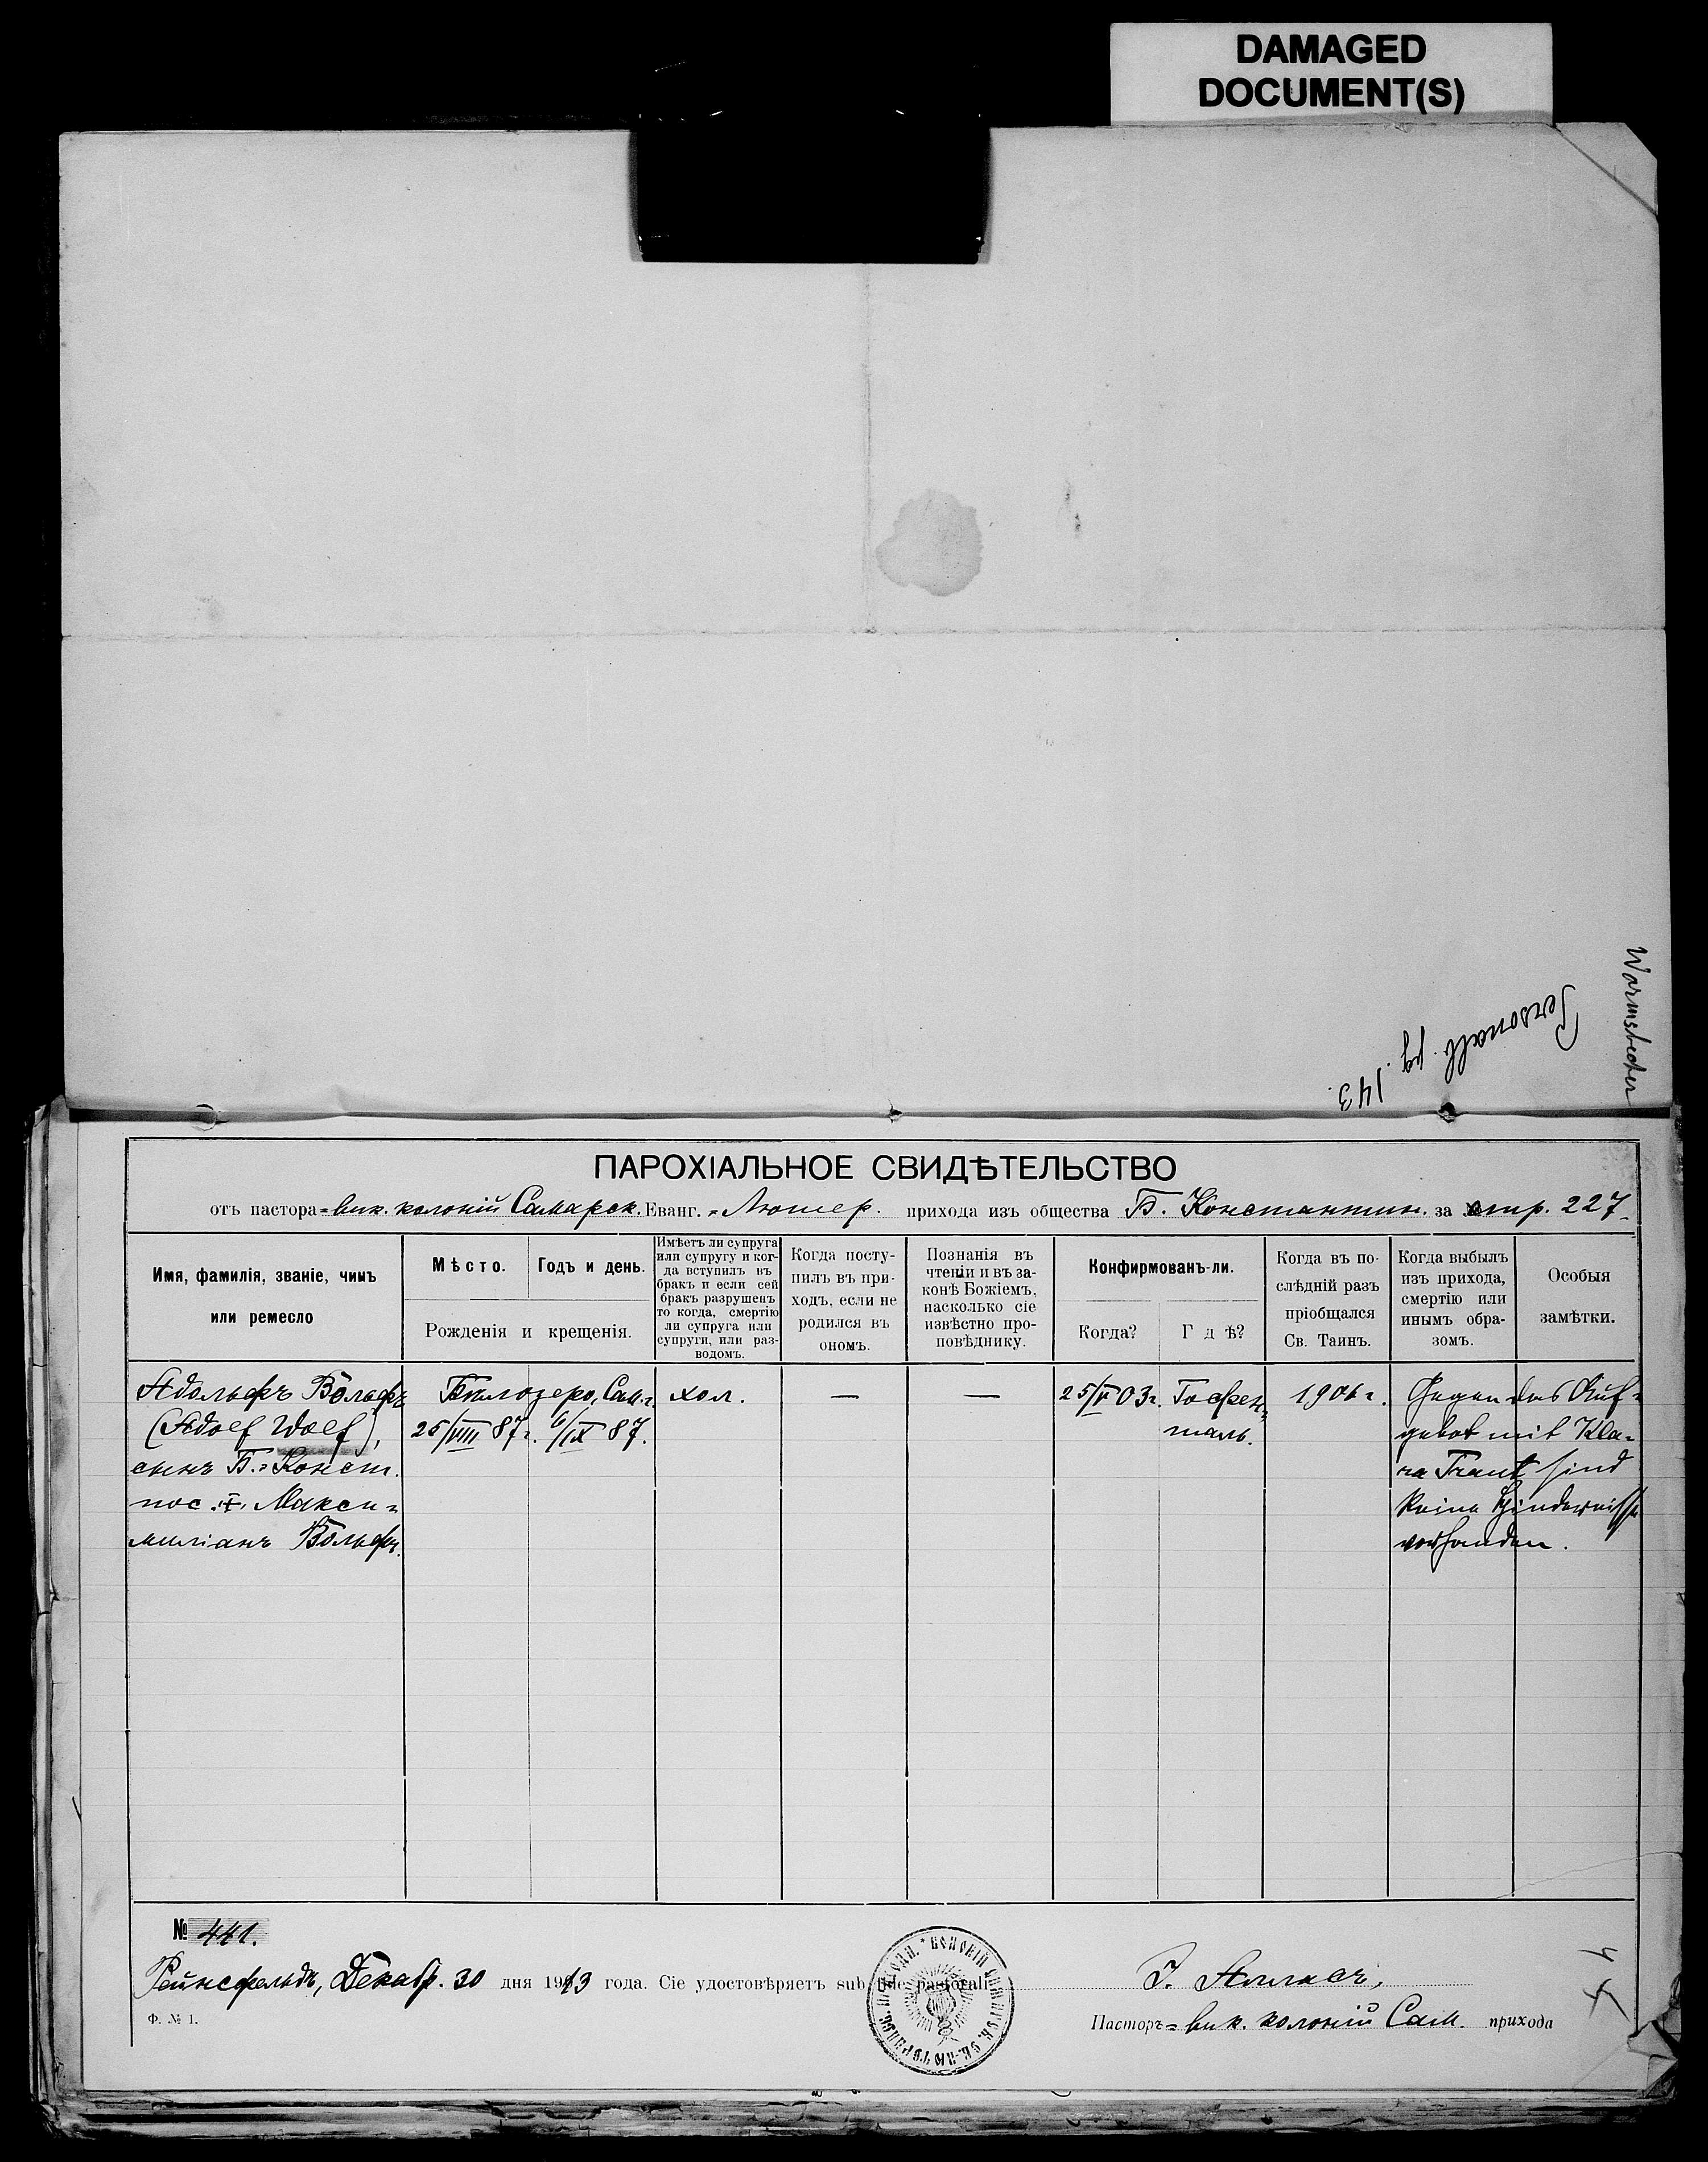 DAMAGED
DOCUMENT(S)
Warmstecher
Personalb. pg. 143.
ПАРОХІАЛЬНОЕ СВИДѢТЕЛЬСТВО
отъ пастора=вик. колоній Самарск. Еванг.=Лютер. прихода изъ общества Б. Константин. за стр. 227
Имя, фамилія, званіе, чинъ
или ремесло
Мѣсто.
Годъ и день.
Рожденія и крещенія.
Имѣетъ ли супруга
или супругу и ког-
да вступилъ въ
бракъ и если сей
бракъ разрушенъ
то когда, смертію
ли супруга или
супруги, или раз-
водомъ.
Когда посту-
пилъ въ при-
ходъ, если не
родился въ
ономъ.
Познанія въ
чтеніи и въ за-
конѣ Божіемъ,
насколько сіе
извѣстно про-
повѣднику.
Конфирмованъ-ли.
Когда?
Гдѣ?
Когда въ по-
слѣдній разъ
пріобщался
Св. Таинъ.
Когда выбылъ
изъ прихода,
смертію или
инымъ обра-
зомъ.
Особыя
замѣтки.
Адольфъ Вольфъ
(Adolf Wolf),
сынъ Б.=Конст.
пос. Макси=
миліанъ Вольфъ.
Бѣлозеро, Сам. г.
25/VIII 87 г. 6/IX 87.
хол.
—
—
25/V 03 г.
Гофен=
таль.
1906 г.
Gegen das Auf=
gebot mit Kla=
ra Traut sind
keine Hindernisse
vorhanden.
№ 441.
Рейнсфельдъ, Декабр. 30 дня 1913 года. Сіе удостовѣряетъ sub fide pastorali
Ф. № 1.
Пасторъ=вик. колоній Сам. прихода